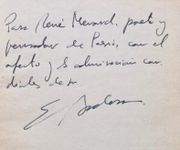 Para René Menard, poeta y
pensador de París, con el
afecto y la admiracion cor
diales de
E.